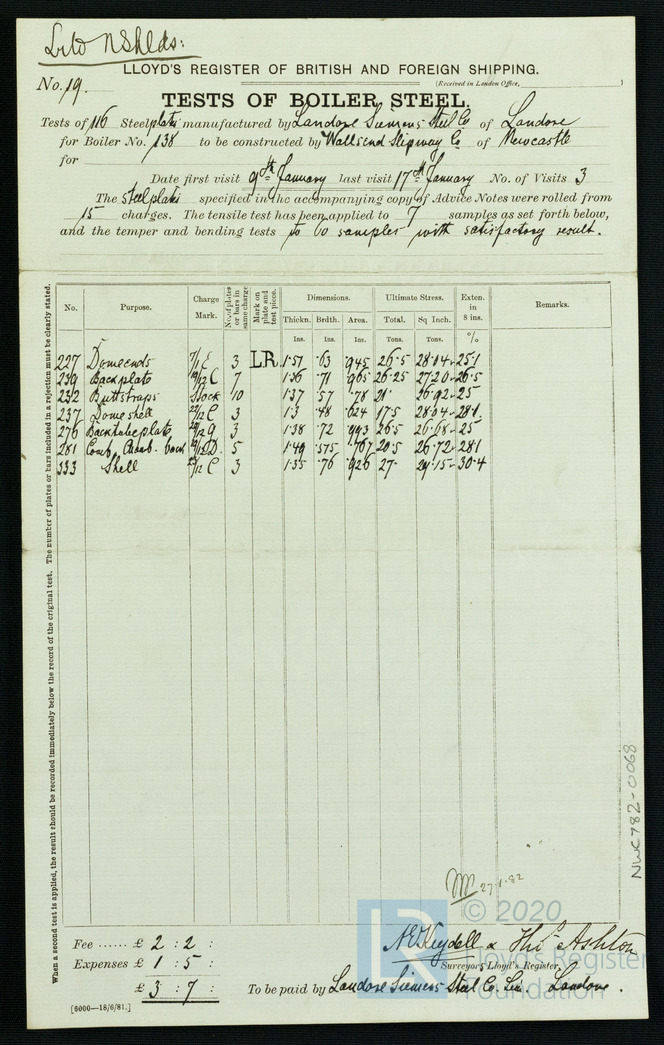 LLOYD'S REGISTER OF BRITISH AND FOREIGN SHIPPING.
No. 19.
(Received in London Office, )
TESTS OF BOILER STEEL.
Tests of 116 Steel plates manufactured by Landore Siemens Steel Co of Landore
for Boiler No. 138 to be constructed by Wallsend Slipway Co of Newcastle
for
Date first visit 9th January last visit 17th January No. of Visits 3
The steel plates specified in the accompanying copy of Advice Notes were rolled from
15 charges. The tensile test has been applied to 7 samples as set forth below,
and the temper and bending tests to 60 samples with satisfactory result.
When a second test is applied, the result should be recorded immediately below the record of the original test. The number of plates or bars included in a rejection must be clearly stated.
No. Purpose. Charge Mark. No. of plates or bars in same charge Mark on plate and test piece. Dimensions. Ultimate Stress. Exten. in 8 ins. Remarks.
Thickn. Brdth. Area. Total. Sq Inch.
Ins. Ins. Ins. Tons. Tons. %
227 Dome ends 7/1 E 3 LR 1.57 .63 .945 26.5 28.04 25.1
239 Back plate C 7 1.36 .71 .965 26.25 27.20 26.5
232 Buttstraps Stock 10 1.37 .57 .78 21. 26.92 25
237 Dome shell /12 C 3 1.3 .48 .624 17.5 28.04 28.1
276 Back tube plate 3 1.38 .72 .993 26.5 26.68 25
281 Comb. Chamb. back 5 1.49 .515 .767 20.5 26.72 28.1
333 Shell /12 C 3 1.35 .76 .926 27. 29.15 30.4
27.1.82
NWC782-0068
© 2020
Lloyd's Register
Foundation
Fee ...... £ 2 : 2 :
Expenses £ 1 : 5 :
£ 3 : 7 :
A E Keydell & Thos Ashton
Surveyors Lloyd's Register,
To be paid by Landore Siemens Steel Co. Lim. Landore.
[6000—18/6/81.]